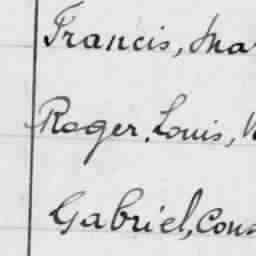 Francis, Ma
Roger, Louis,
Gabriel, Cons